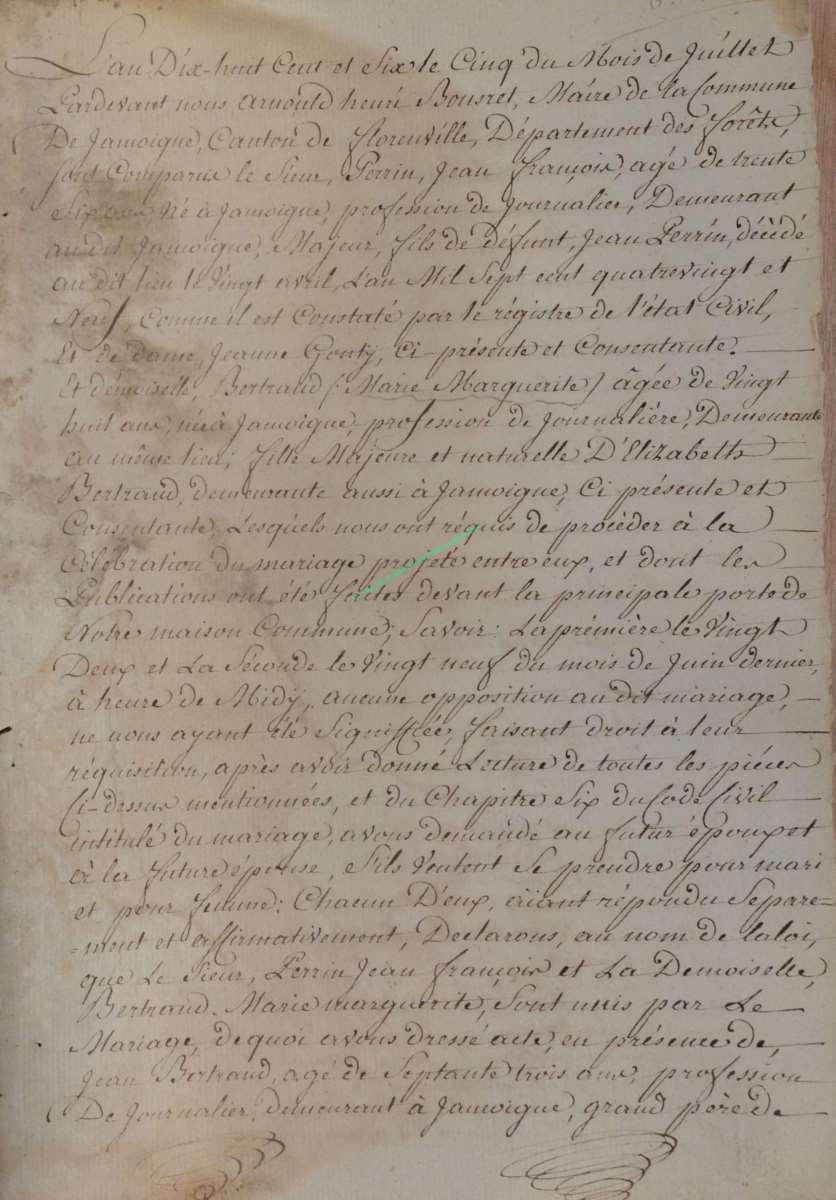 L'an Dix-huit Cent et Six le Cinq du Mois de Juillet
Pardevant nous arnould henri Bousret, Maire de la Commune
De Jamoigne, Canton de florenville, Département des forêts,
sont Comparus le Sieur, Perrin, Jean françois, agé de trente
Six ans né à Jamoigne, profession de Journalier, Demeurant
au dit Jamoigne, Majeur, fils de défunt, Jean Perrin, décédé
au dit lieu le Vingt avril, L'an Mil Sept cent quatrevingt et
Neuf, comme il est Constaté par le régistre de l'état Civil,
Et de dame, Jeanne Gouty, Ci-présente et Consentante.
Et démoiselle, Bertrand (Marie Marguerite) âgée de Vingt
huit ans, née à Jamoigne, profession de Journalière, Demeurante
au même lieu; fille Majeure et naturelle D'Elizabeth
Bertrand, demeurante aussi à Jamoigne, Ci présente et
Consentante, Lesquels nous ont réquis de procéder à la
Célébration du mariage projeté entre eux, et dont les
Publications ont été faites devant la principale porte de
Notre maison Commune; Savoir: La prémière le Vingt
Deux et La Seconde le Vingt neuf du mois de Juin dernier,
à heure de Midÿ, aucune opposition au dit mariage,
ne nous ayant été Signiffiée, faisant droit à leur
réquisition, après avoir donné Lecture de toutes les piéces
Ci-dessus mentionnées, et du Chapitre Six du Code Civil
intitulé du mariage, avons demandé au futur époux et
à la future épouse, S'ils Veulent Se prendre pour mari
et pour femme: Chacun D'eux, aïant répondu Separe=
=ment et affirmativement, Declarons, au nom de la loi,
que Le Sieur, Perrin Jean françois et La Demoiselle,
Bertrand Marie marguerite, Sont unis par Le
Mariage, de quoi avons dressé acte, en présence de,
Jean Bertrand, agé de Septante trois ans, profession
De Journalier, demeurant à Jamoigne, grand père de